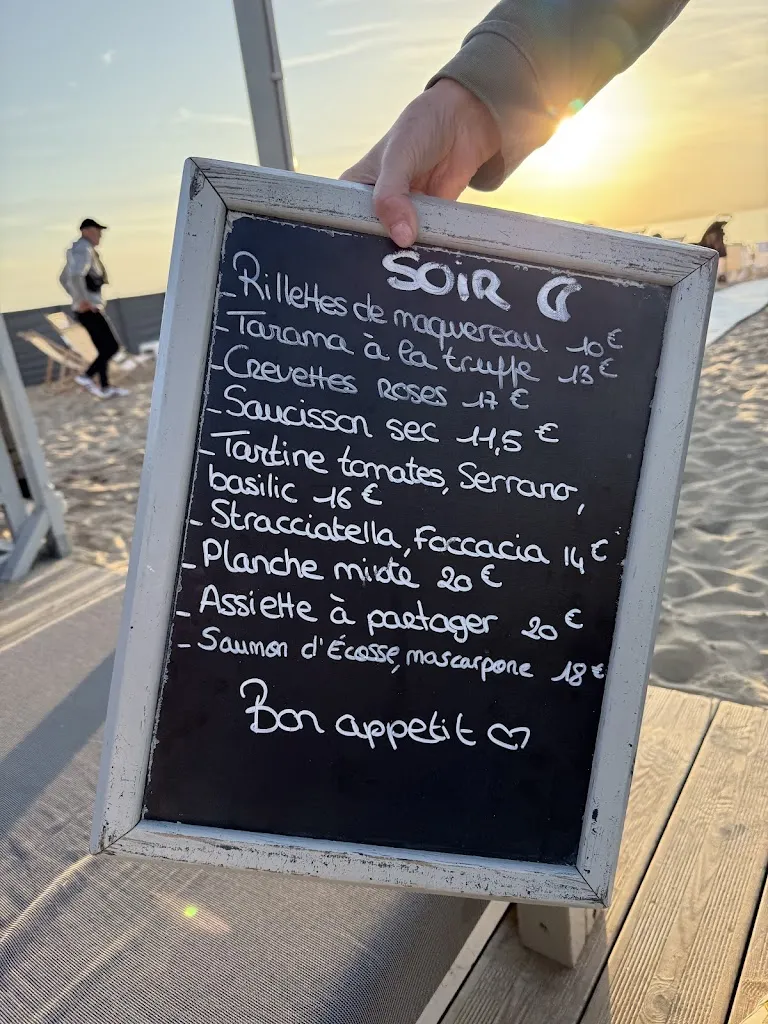 SOIR
- Rillettes de maquereau 10€
- Tarama à la truffe 13€
- Crevettes Roses 17€
- Saucisson sec 11,5€
- Tartine tomates, Serrano,
basilic 16€
- Stracciatella, Foccacia 14€
- Planche mixte 20€
- Assiette à partager 20€
- Saumon d'Écosse, mascarpone 18€
Bon appetit ♡